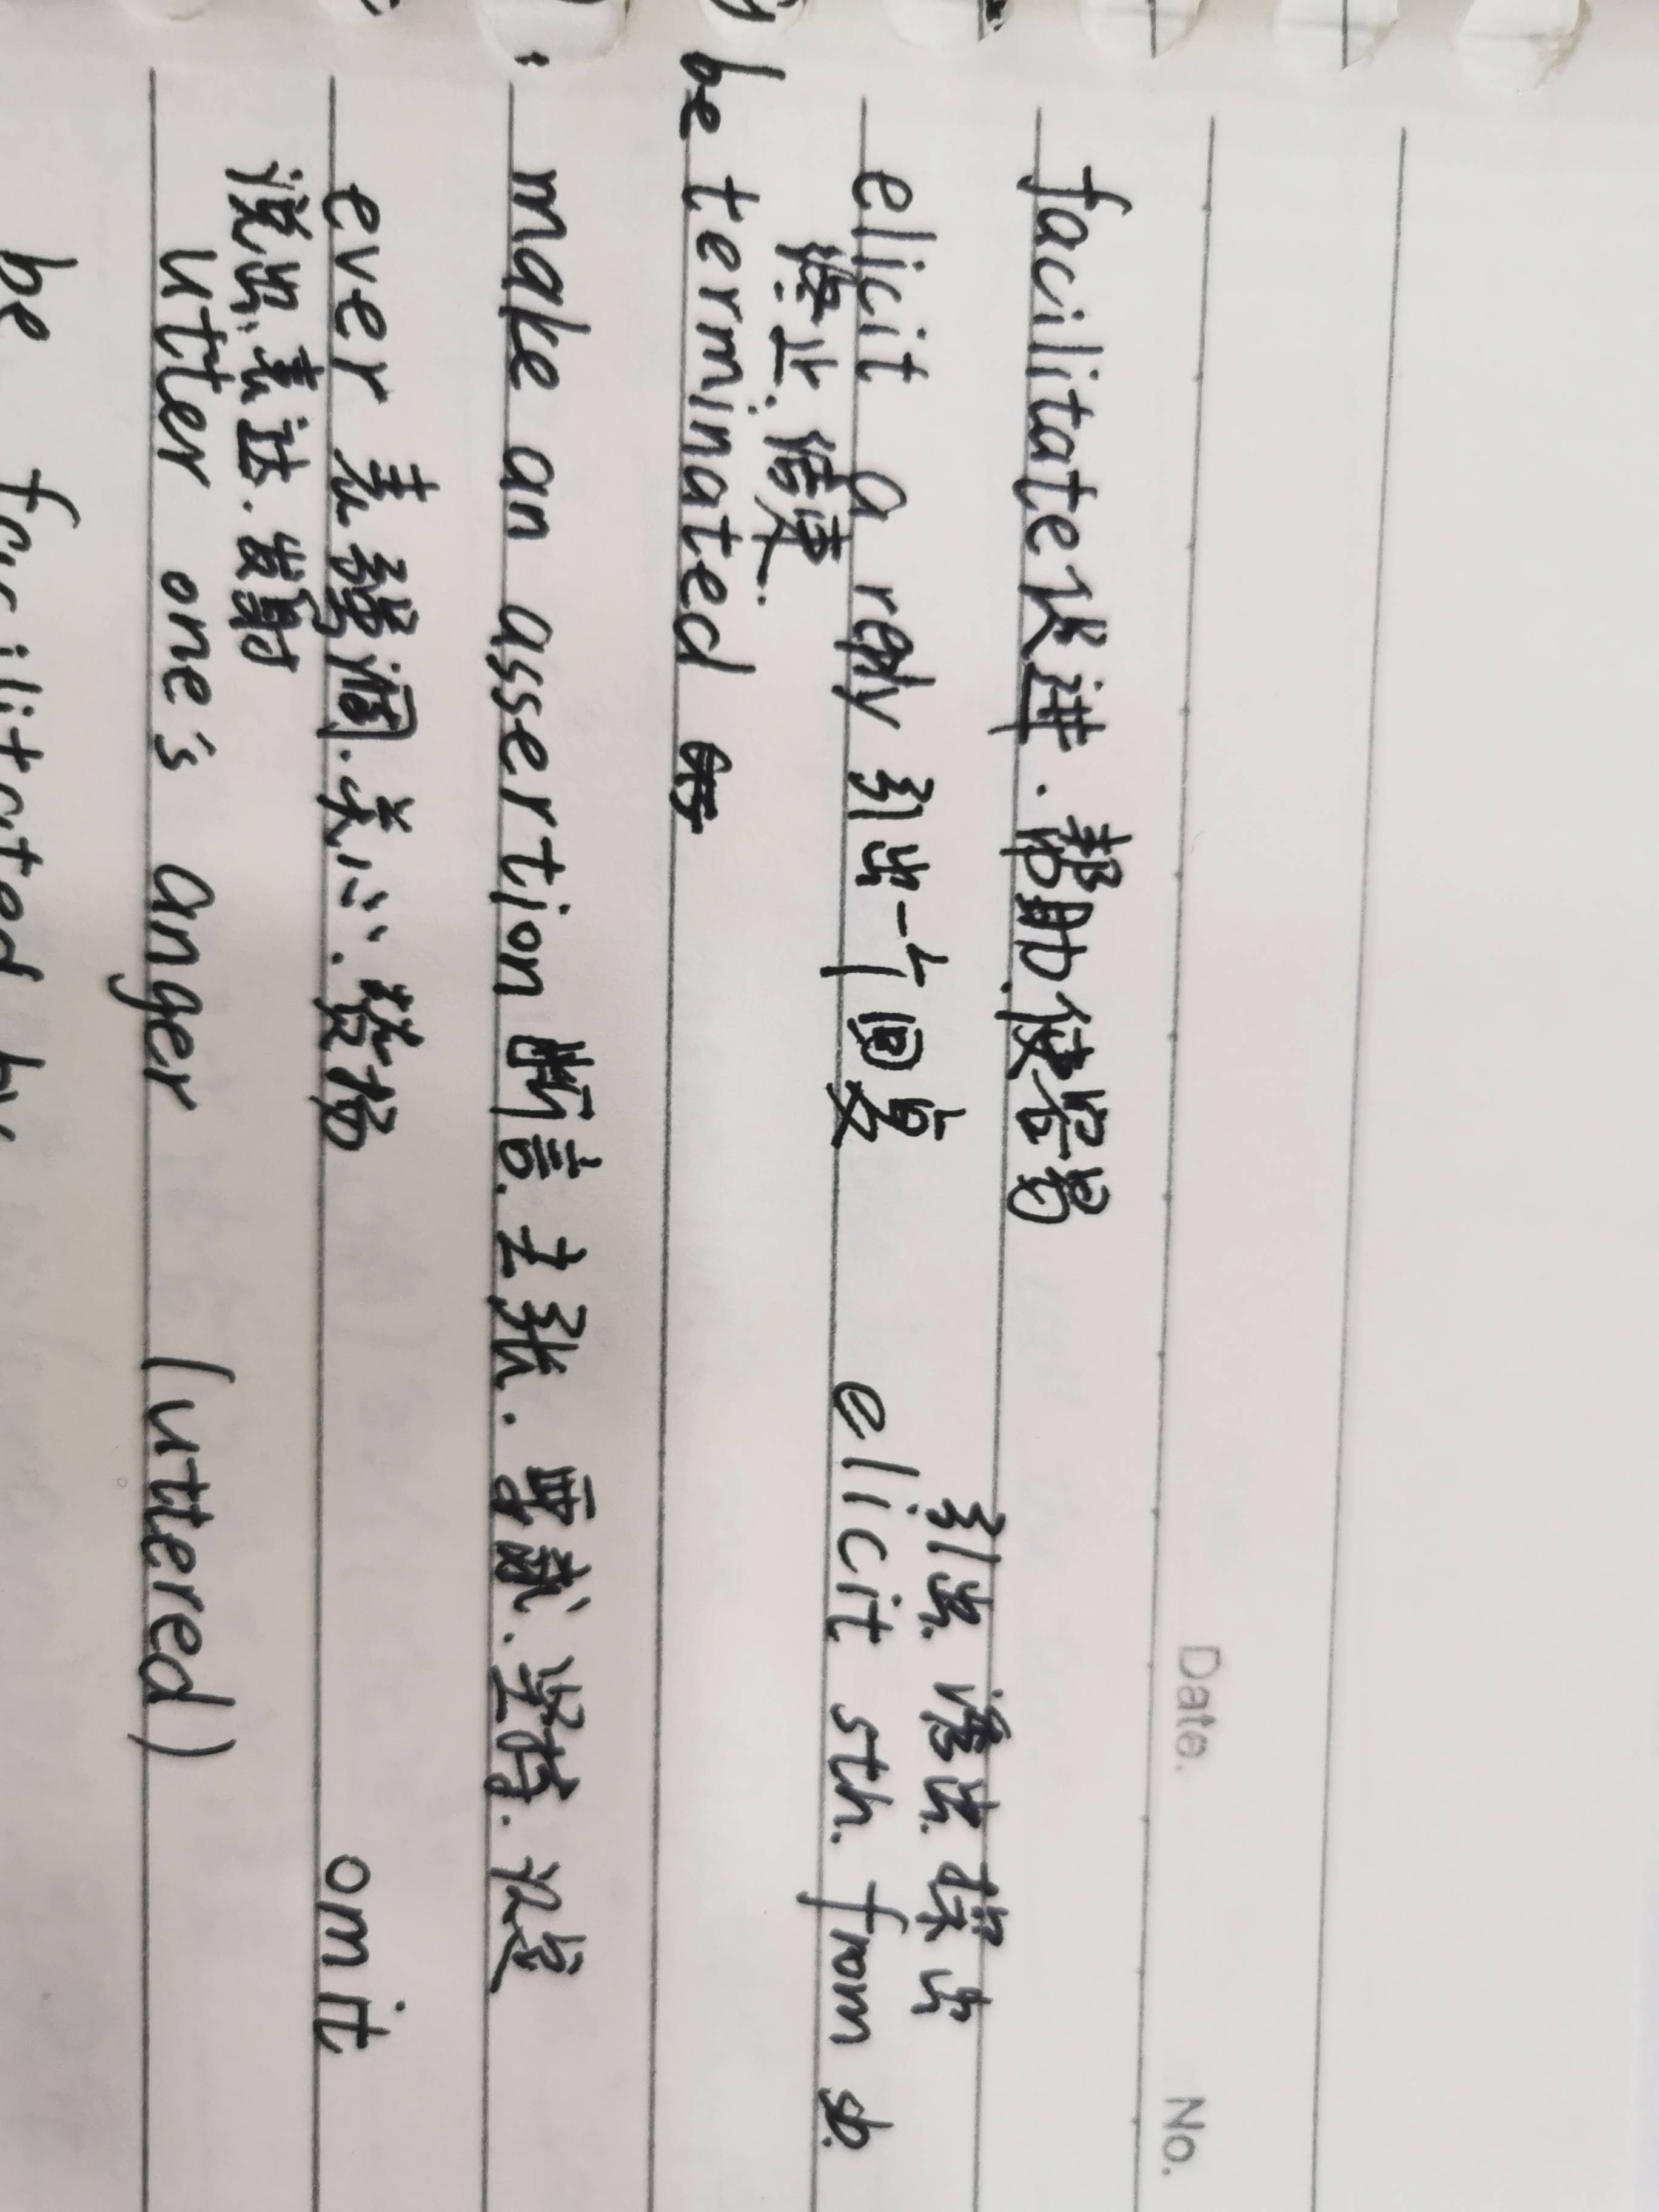 Date. No.
facilitate 促进. 帮助. 使容易
引出. 诱出. 探出
elicit a reply 引出一个回复 elicit sth. from sb.
停止. 结束.
be terminated
: make an assertion 断言. 主张. 坚持. 设
ever 表强调. 关心. 赞扬 omit
说出. 表达. 发射
utter one's anger (uttered)
be facilitated by